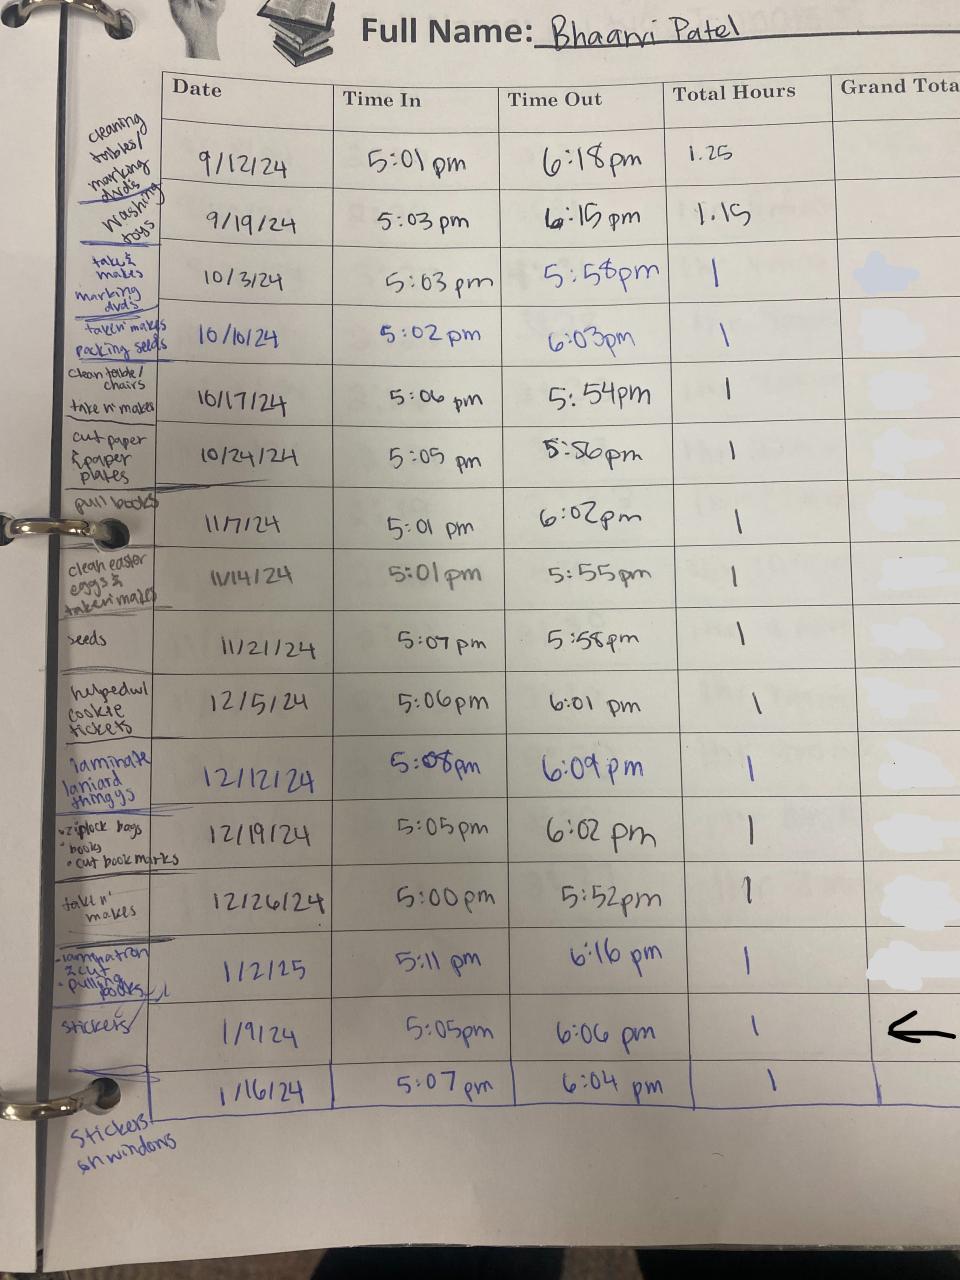 Full Name: Bhaanvi Patel
Date Time In Time Out Total Hours Grand Tota
cleaning
tables/
marking
dvds
9/12/24 5:01 pm 6:18pm 1.25
washing
toys
9/19/24 5:03 pm 6:15 pm 1.15
take &
makes
marking
dvds
10/3/24 5:03 pm 5:58pm 1
take n' makes
packing seeds
10/10/24 5:02 pm 6:03pm 1
clean table/
chairs
take n' makes
10/17/24 5:06 pm 5:54pm 1
cut paper
& paper
plates
10/24/24 5:05 pm 5:56pm 1
pull books
11/7/24 5:01 pm 6:02pm 1
clean easter
eggs &
take n' makes
11/14/24 5:01pm 5:55pm 1
seeds
11/21/24 5:07pm 5:58pm 1
helped w/
cookie
tickets
12/5/24 5:06pm 6:01 pm 1
laminate
laniard
thingys
12/12/24 5:08pm 6:09 pm 1
• ziplock bags
• books
• cut bookmarks
12/19/24 5:05pm 6:02 pm 1
take n'
makes
12/26/24 5:00pm 5:52pm 1
& cut
• pulling
books
1/2/25 5:11 pm 6:16 pm 1
stickers
1/9/24 5:05pm 6:06 pm 1
1/16/24 5:07 pm 6:04 pm 1
stickers
on windows